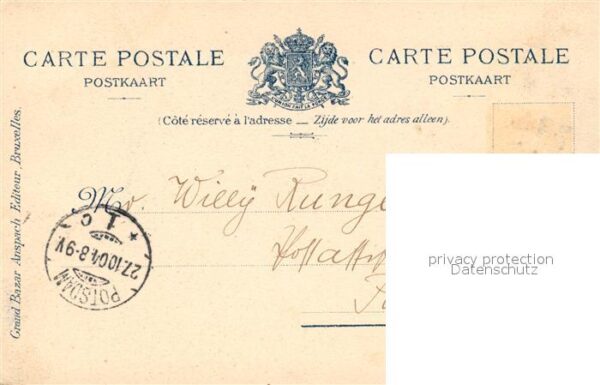 CARTE POSTALE
POSTKAART
CARTE POSTALE
POSTKAART
(Côté réservé à l'adresse — Zijde voor het adres alleen).
Grand Bazar Anspach Editeur Bruxelles.
Mr. Willÿ Runge
privacy protection
Datenschutz
POTSDAM
27.10.04.8-9V.
* 1 c